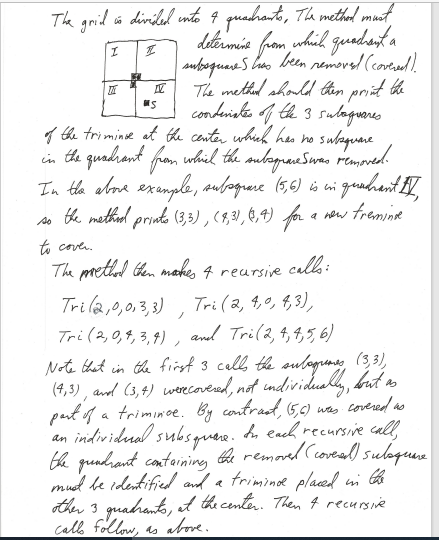 The grid is divided into 4 quadrants. The method must
determine from which quadrant a
subsquare S has been removed (covered).
I II
III IV
S
The method should then print the
coordinates of the 3 subsquares
of the triminoe at the center which has no subsquare
in the quadrant from which the subsquare S was removed.
In the above example, subsquare (5,6) is in quadrant IV,
so the method prints (3,3), (4,3), (3,4) for a new treminoe
to cover.
The method then makes 4 recursive calls:
Tri(2,0,0,3,3) , Tri(2,4,0,4,3),
Tri(2,0,4,3,4) , and Tri(2,4,4,5,6)
Note that in the first 3 calls the subsquares (3,3),
(4,3), and (3,4) were covered, not individually, but as
part of a triminoe. By contrast, (5,6) was covered as
an individual subsquare. In each recursive call,
the quadrant containing the removed (covered) subsquare
must be identified and a triminoe placed in the
other 3 quadrants, at the center. Then 4 recursive
calls follow, as above.